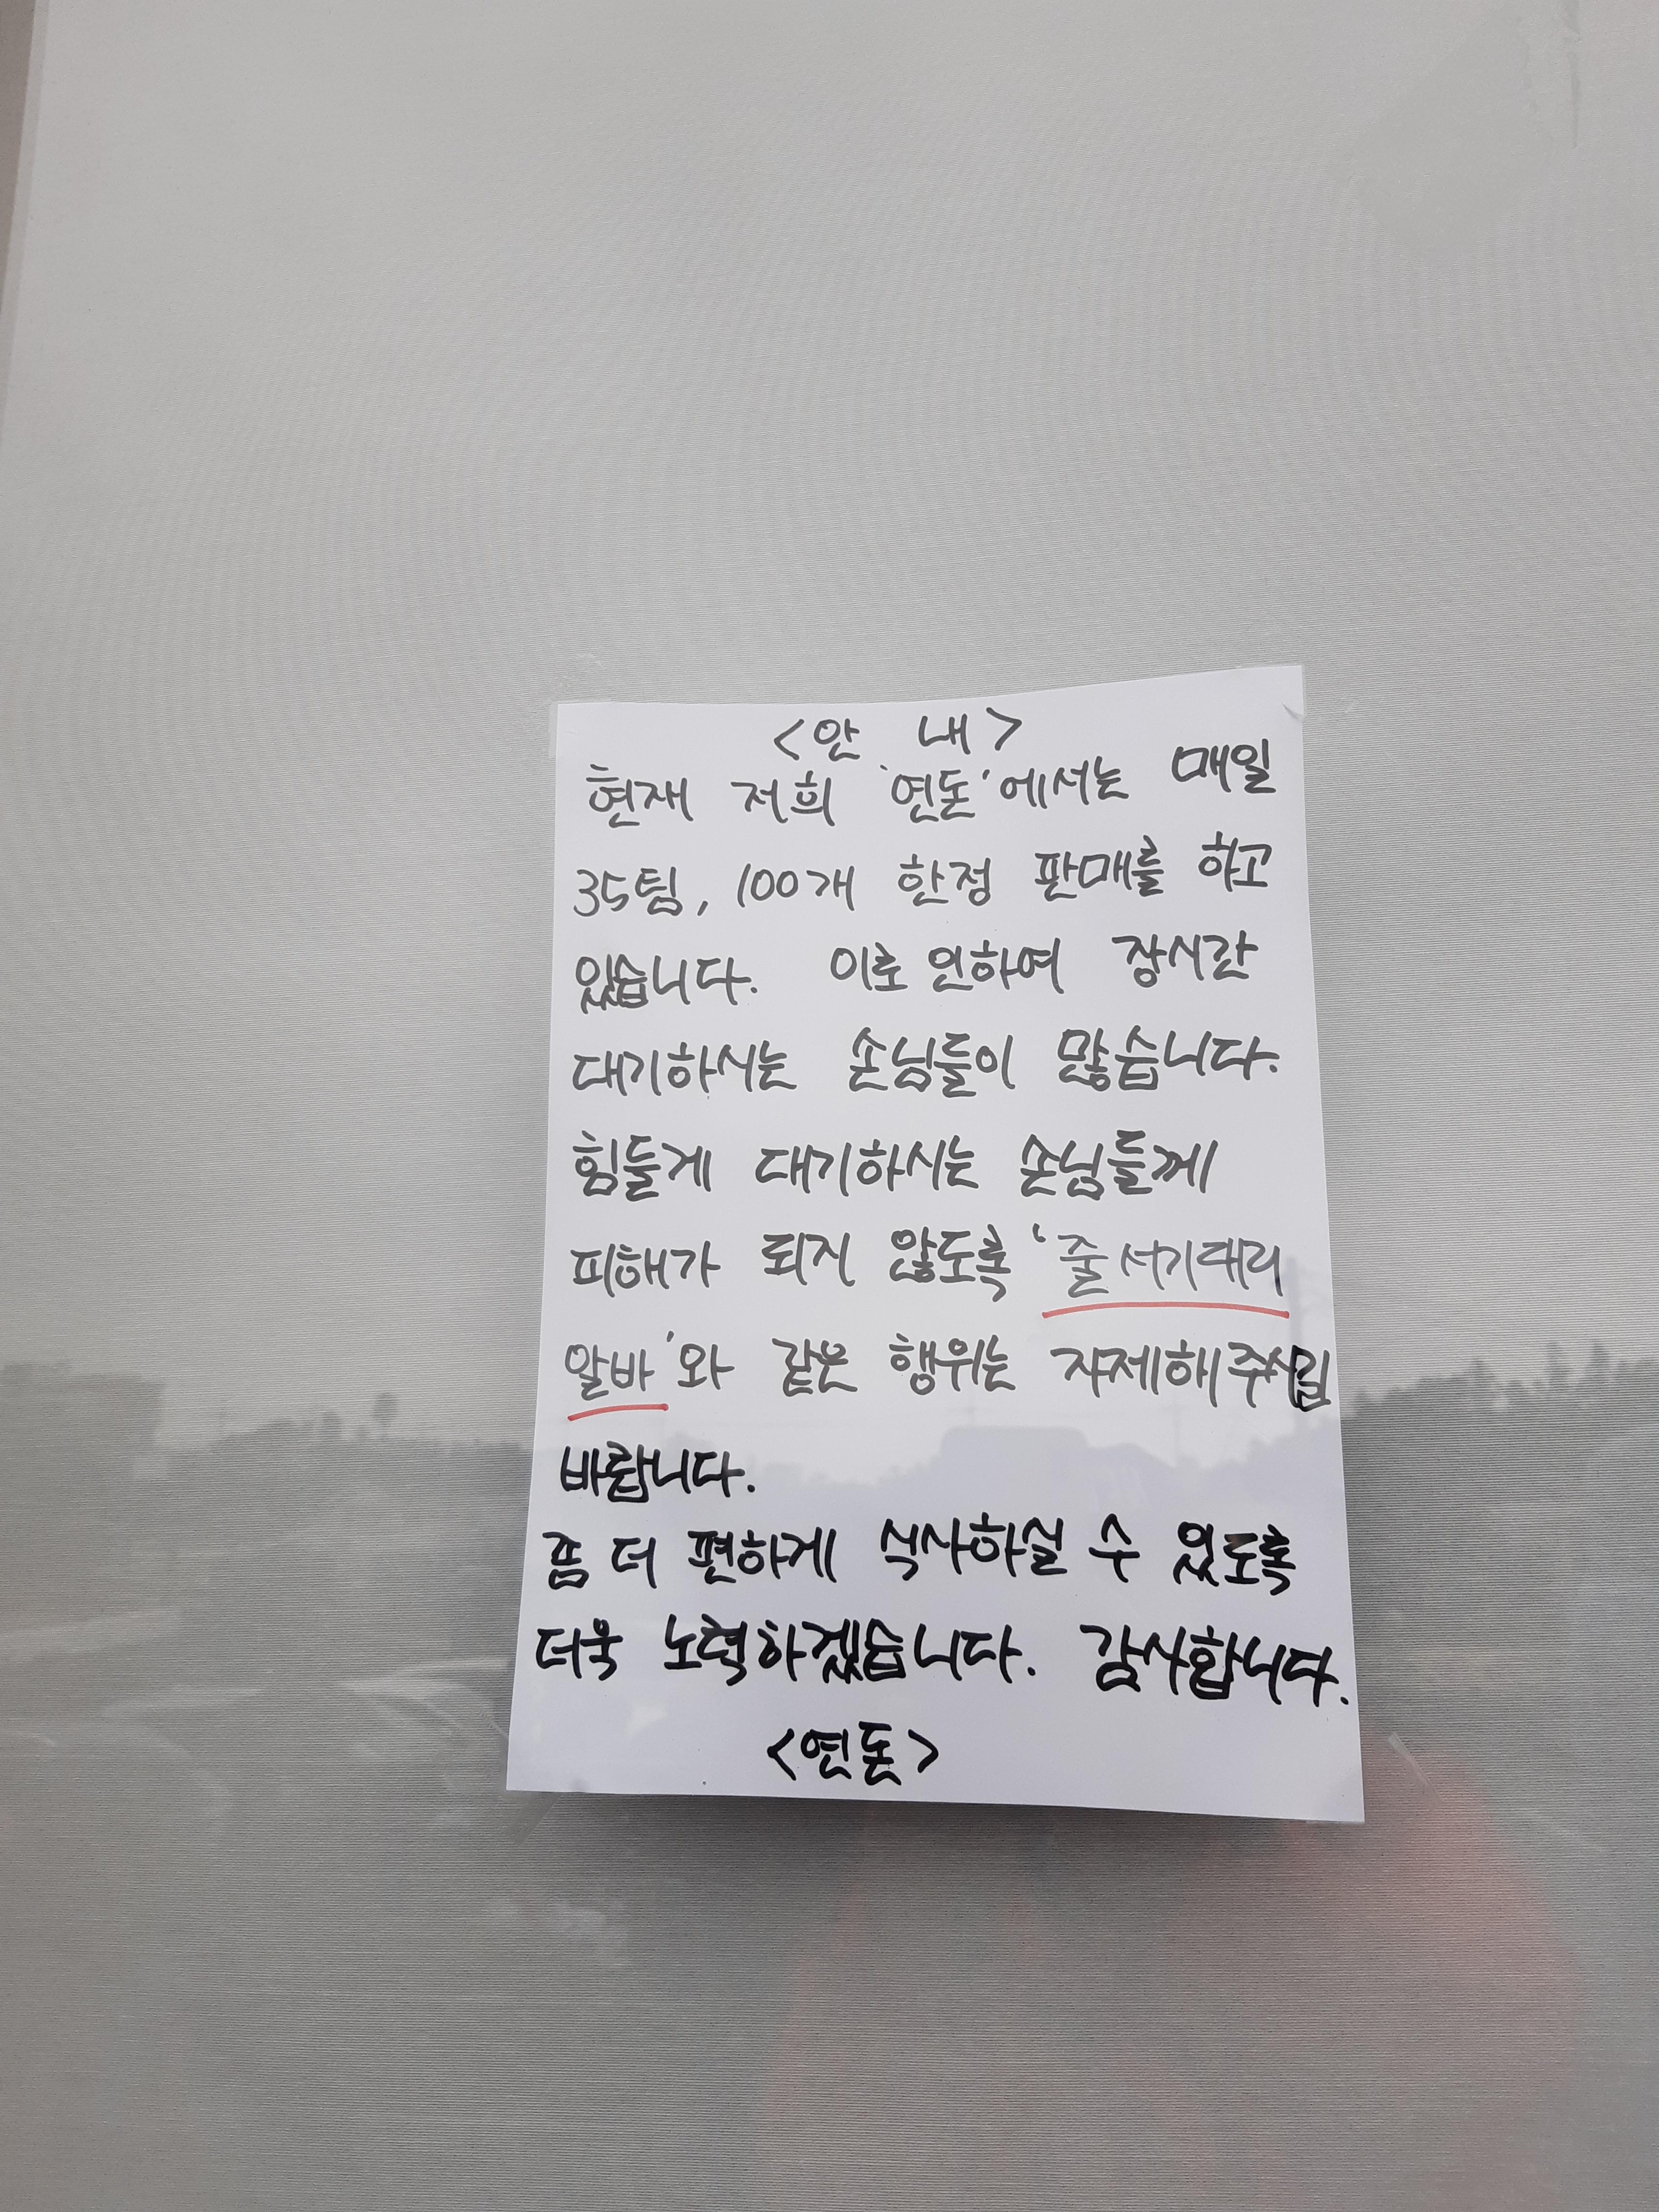 <안 내>
현재 저희 '연돈'에서는 매일
35팀, 100개 한정 판매를 하고
있습니다. 이로 인하여 장시간
대기하시는 손님들이 많습니다.
힘들게 대기하시는 손님들께
피해가 되지 않도록 '줄서기대리
알바'와 같은 행위는 자제해주시길
바랍니다.
좀 더 편하게 식사하실 수 있도록
더욱 노력하겠습니다. 감사합니다.
<연돈>